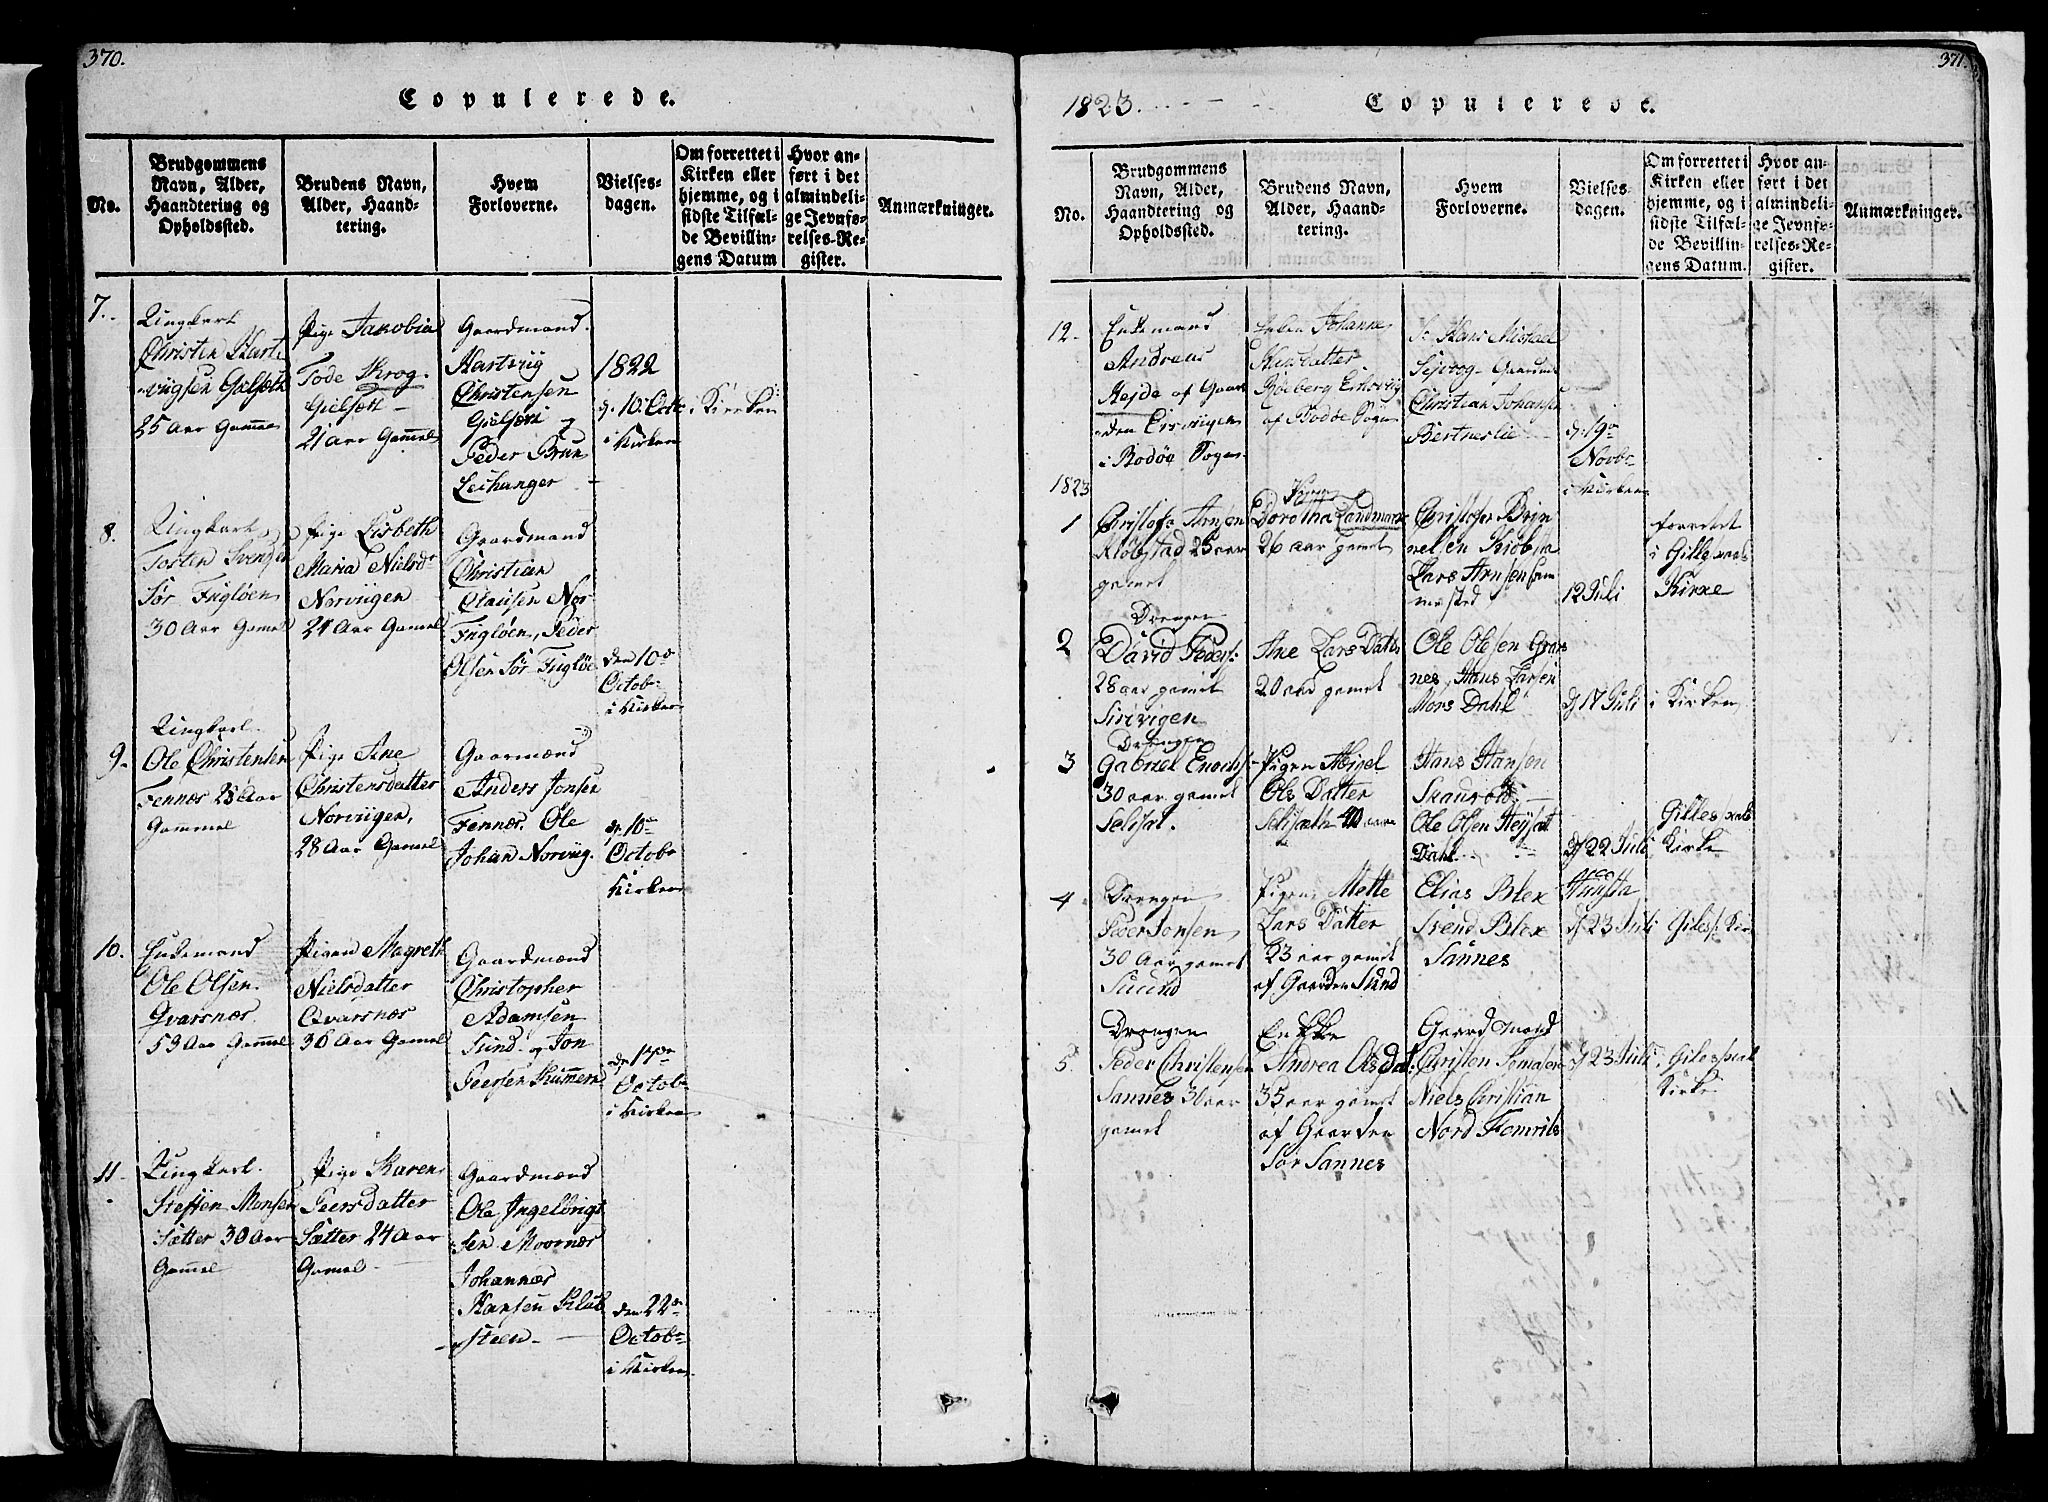 370.
Copulerede.
No.
Brudgommens
Navn, Alder,
Haandtering og
Opholdssted.
Brudens Navn,
Alder, Haand-
tering.
Hvem
Forloverne.
Vielses-
dagen.
Om forrettet i
Kirken eller
hjemme, og i
sidste Tilfæl-
de Bevillin-
gens Datum
Hvor an-
ført i det
almindeli-
ge Jevnfø-
relses-Re-
gister.
Anmærkninger.
7.
Ungkarl
Christen Hart
vigsen Gielsæth
25 Aar Gammel
Pige Jakobia
Tode Skrog
Gielsæth
21 Aar Gammel
Gaardmænd
Hartvig
Christensen
Gielsæth og
Peder Brun
Leihanger
1822
d. 10 Octb
i Kirken
i Kirken
8.
Ungkarl
Tosten Svendsen
Sør Fugløen
30 Aar Gamel
Pige Lisbeth
Maria Nielsd
Norviigen
24 Aar Gamel
Gaardmænd
Christian
Olausen Nor
Fugløen, Peder
Olsen Sør Fugløe
den 10de
Octob
i Kirken
9.
Ungkarl
Ole Christensen
Fennes 28 Aar
Gammel
Pige Ane
Christensdatter
Norviigen,
28 Aar Gamel
Gaarmænd
Anders Jonsen
Fennes, Ole
Johan Norviig.
d. 10
Octobr
Kirken
10.
Enkemand
Ole Olsen
Qvarsnæs
53 Aar Gammel
Pigen Magreth
Nielsdatter
Qvarsnæs
36 Aar Gamel
Gaardmænd
Christopher
Adamsen
Sund og Jon
Peersen
Octob
i Kirken
11.
Ungkarl
Steffen Monsen
Sætter 30 Aar
Gamel
Pige Karen
Peersdatter
Sætter 24 Aar
Gamel
Gaardmænd
Ole Ingelbrigt
sen Moornæs
Johannes
Hansen Klub
steen
den 22de
Octob
i Kirken
371.
1823.
Copulerede.
No.
Brudgommens
Navn, Alder,
Haandtering og
Opholdssted.
Brudens Navn,
Alder, Haand-
tering.
Hvem
Forloverne.
Vielses-
dagen.
Om forrettet i
Kirken eller
hjemme, og i
sidste Tilfæl-
de Bevillin-
gens Datum.
Hvor an-
ført i det
almindeli-
ge Jevnfø-
relses-Re-
gister.
Anmærkninger.
12.
Enkemand
Andreas
Hejde af Gaar
den
i Bodøe Sogn
Johanne
af Bodøe Sogn
Hans Michael
Christian Johansen
Bertneslie
d. 19
Novb
i Kirken
1823
1
Christofer Arnsen
Kløgstad 25 aar
gamel
Dorothea Landmark
26 aar gamel
Christofer Bryn
nelsen
Lars Arnsen sam
mested
12 Juli
forrettet
i Gillesxals
Kirke
2
Drengen
David Peders:
28 aar gamel
Pige
Ane Lars Datter
20 aar gamel
Ole Olesen Qvars
nes, Hans Larsen
Mors Dahl
d 17 Juli
i Kirken
3
Drengen
Gabriel Enochs
30 aar gamel
Selsæt.
Pigen Abigel
Ols Datter
Selsæth 40 aar
Hans Hansen
Ole Olsen
Dahl
d 22 Juli
Gillesxals
Kirke
4
Drengen
Peder Jonsen
30 Aar gamel
Suund
Pigen Mette
Lars Datter
23 aar gamel
af Gaarden Sund
Elias Blex
Svend Blex
Sannes
d 23 Juli
Giles: Kir
5
Drengen
Peder Christensen
Sannes 30 aar
gamel
Enkke
Andrea Olsdat
35 aar gamel
af Gaarden
Sør Sannes
Gaardmænd
Christen
Niels Christian
Nord
d 23 Juli
Gilesxal
Kirke